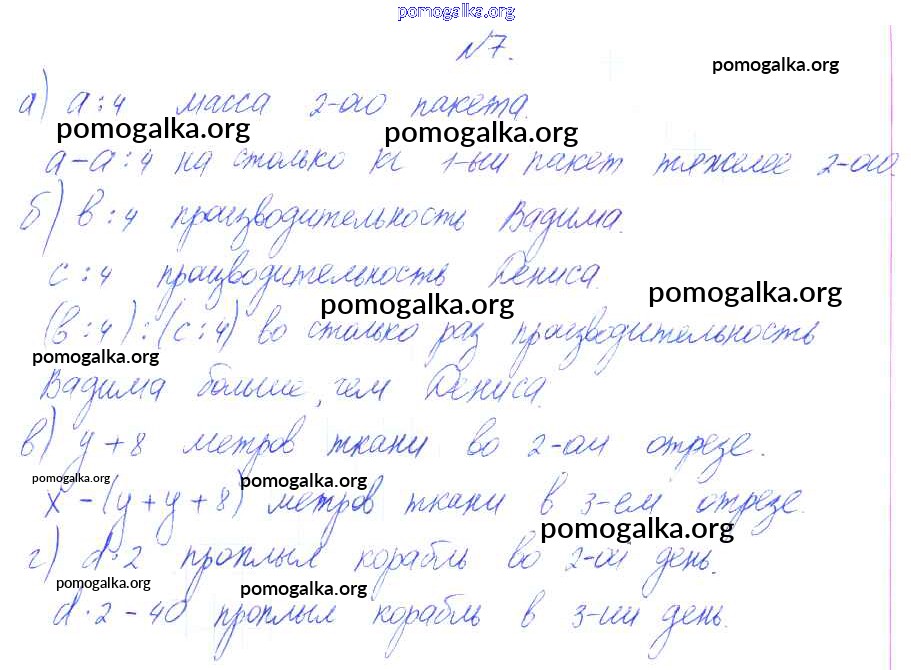 pomogalka.org
№7.
pomogalka.org
а) a:4 масса 2-ого пакета.
pomogalka.org pomogalka.org
a-a:4 на столько кг 1-ый пакет тяжелее 2-ого.
б) в:4 производительность Вадима.
c:4 производительность Дениса.
pomogalka.org pomogalka.org
(в:4):(c:4) во столько раз производительность
pomogalka.org
Вадима больше, чем Дениса.
в) y+8 метров ткани во 2-ом отрезе.
pomogalka.org pomogalka.org
x-(y+y+8) метров ткани в 3-ем отрезе.
pomogalka.org
г) d·2 проплыл корабль во 2-ой день.
pomogalka.org pomogalka.org
d·2-40 проплыл корабль в 3-ий день.